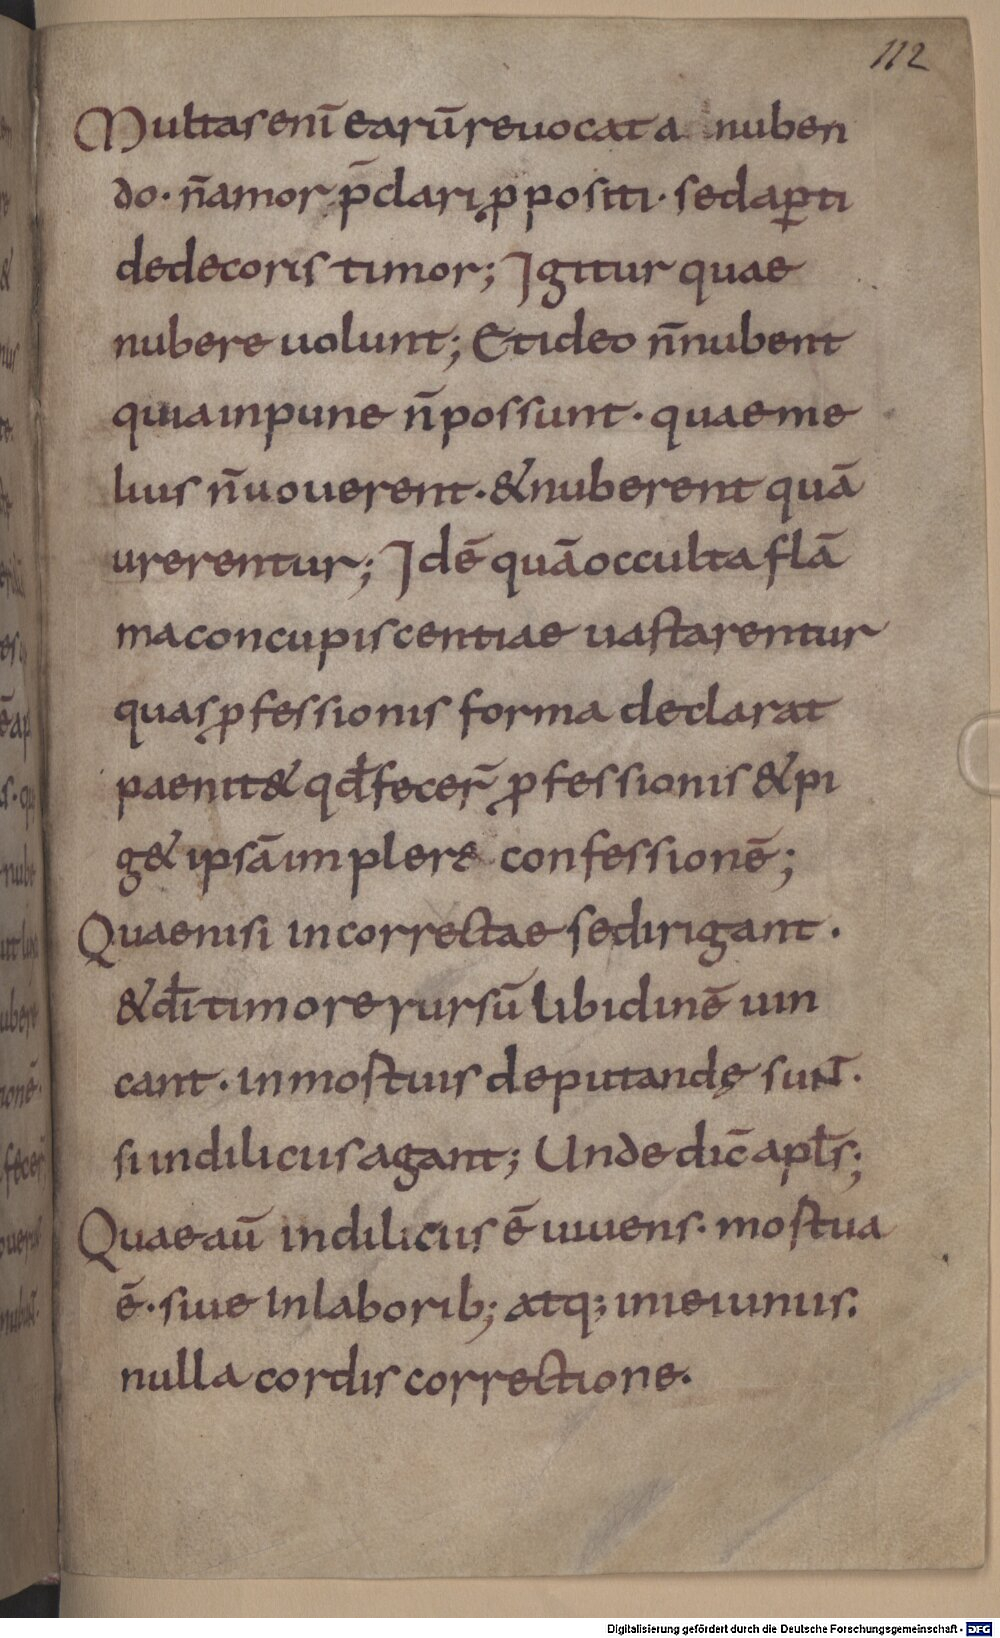 112
Multas enī earū reuocat a nuben
do· n̄ amor p̄clari ꝓpositi· sed aꝑti
dedecoris timor; Igitur quae
nubere uolunt; Et ideo n̄ nubent
quia inpune n̄ possunt· quae me
lius n̄ uouerent· & nuberent quā
urerentur; Idē quā occulta flā
ma concupiscentiae uastarentur
quas ꝓfessionis forma declarat
paenit& qd̄ fecer̄ ꝓfessionis & pi
g& ipsā implere confessionē;
Quae nisi in correctae se dirigant·
& dī timore rursū libidinē uin
cant· in mostuis deputandę sunt·
si in diliciis agant; Unde dic̄ apl̄s;
Quae aū in diliciis ē uiuens· mostua
ē· siue in laborib; atq; in ieiuniis:
nulla cordis correctione·
Digitalisierung gefördert durch die Deutsche Forschungsgemeinschaft - DFG